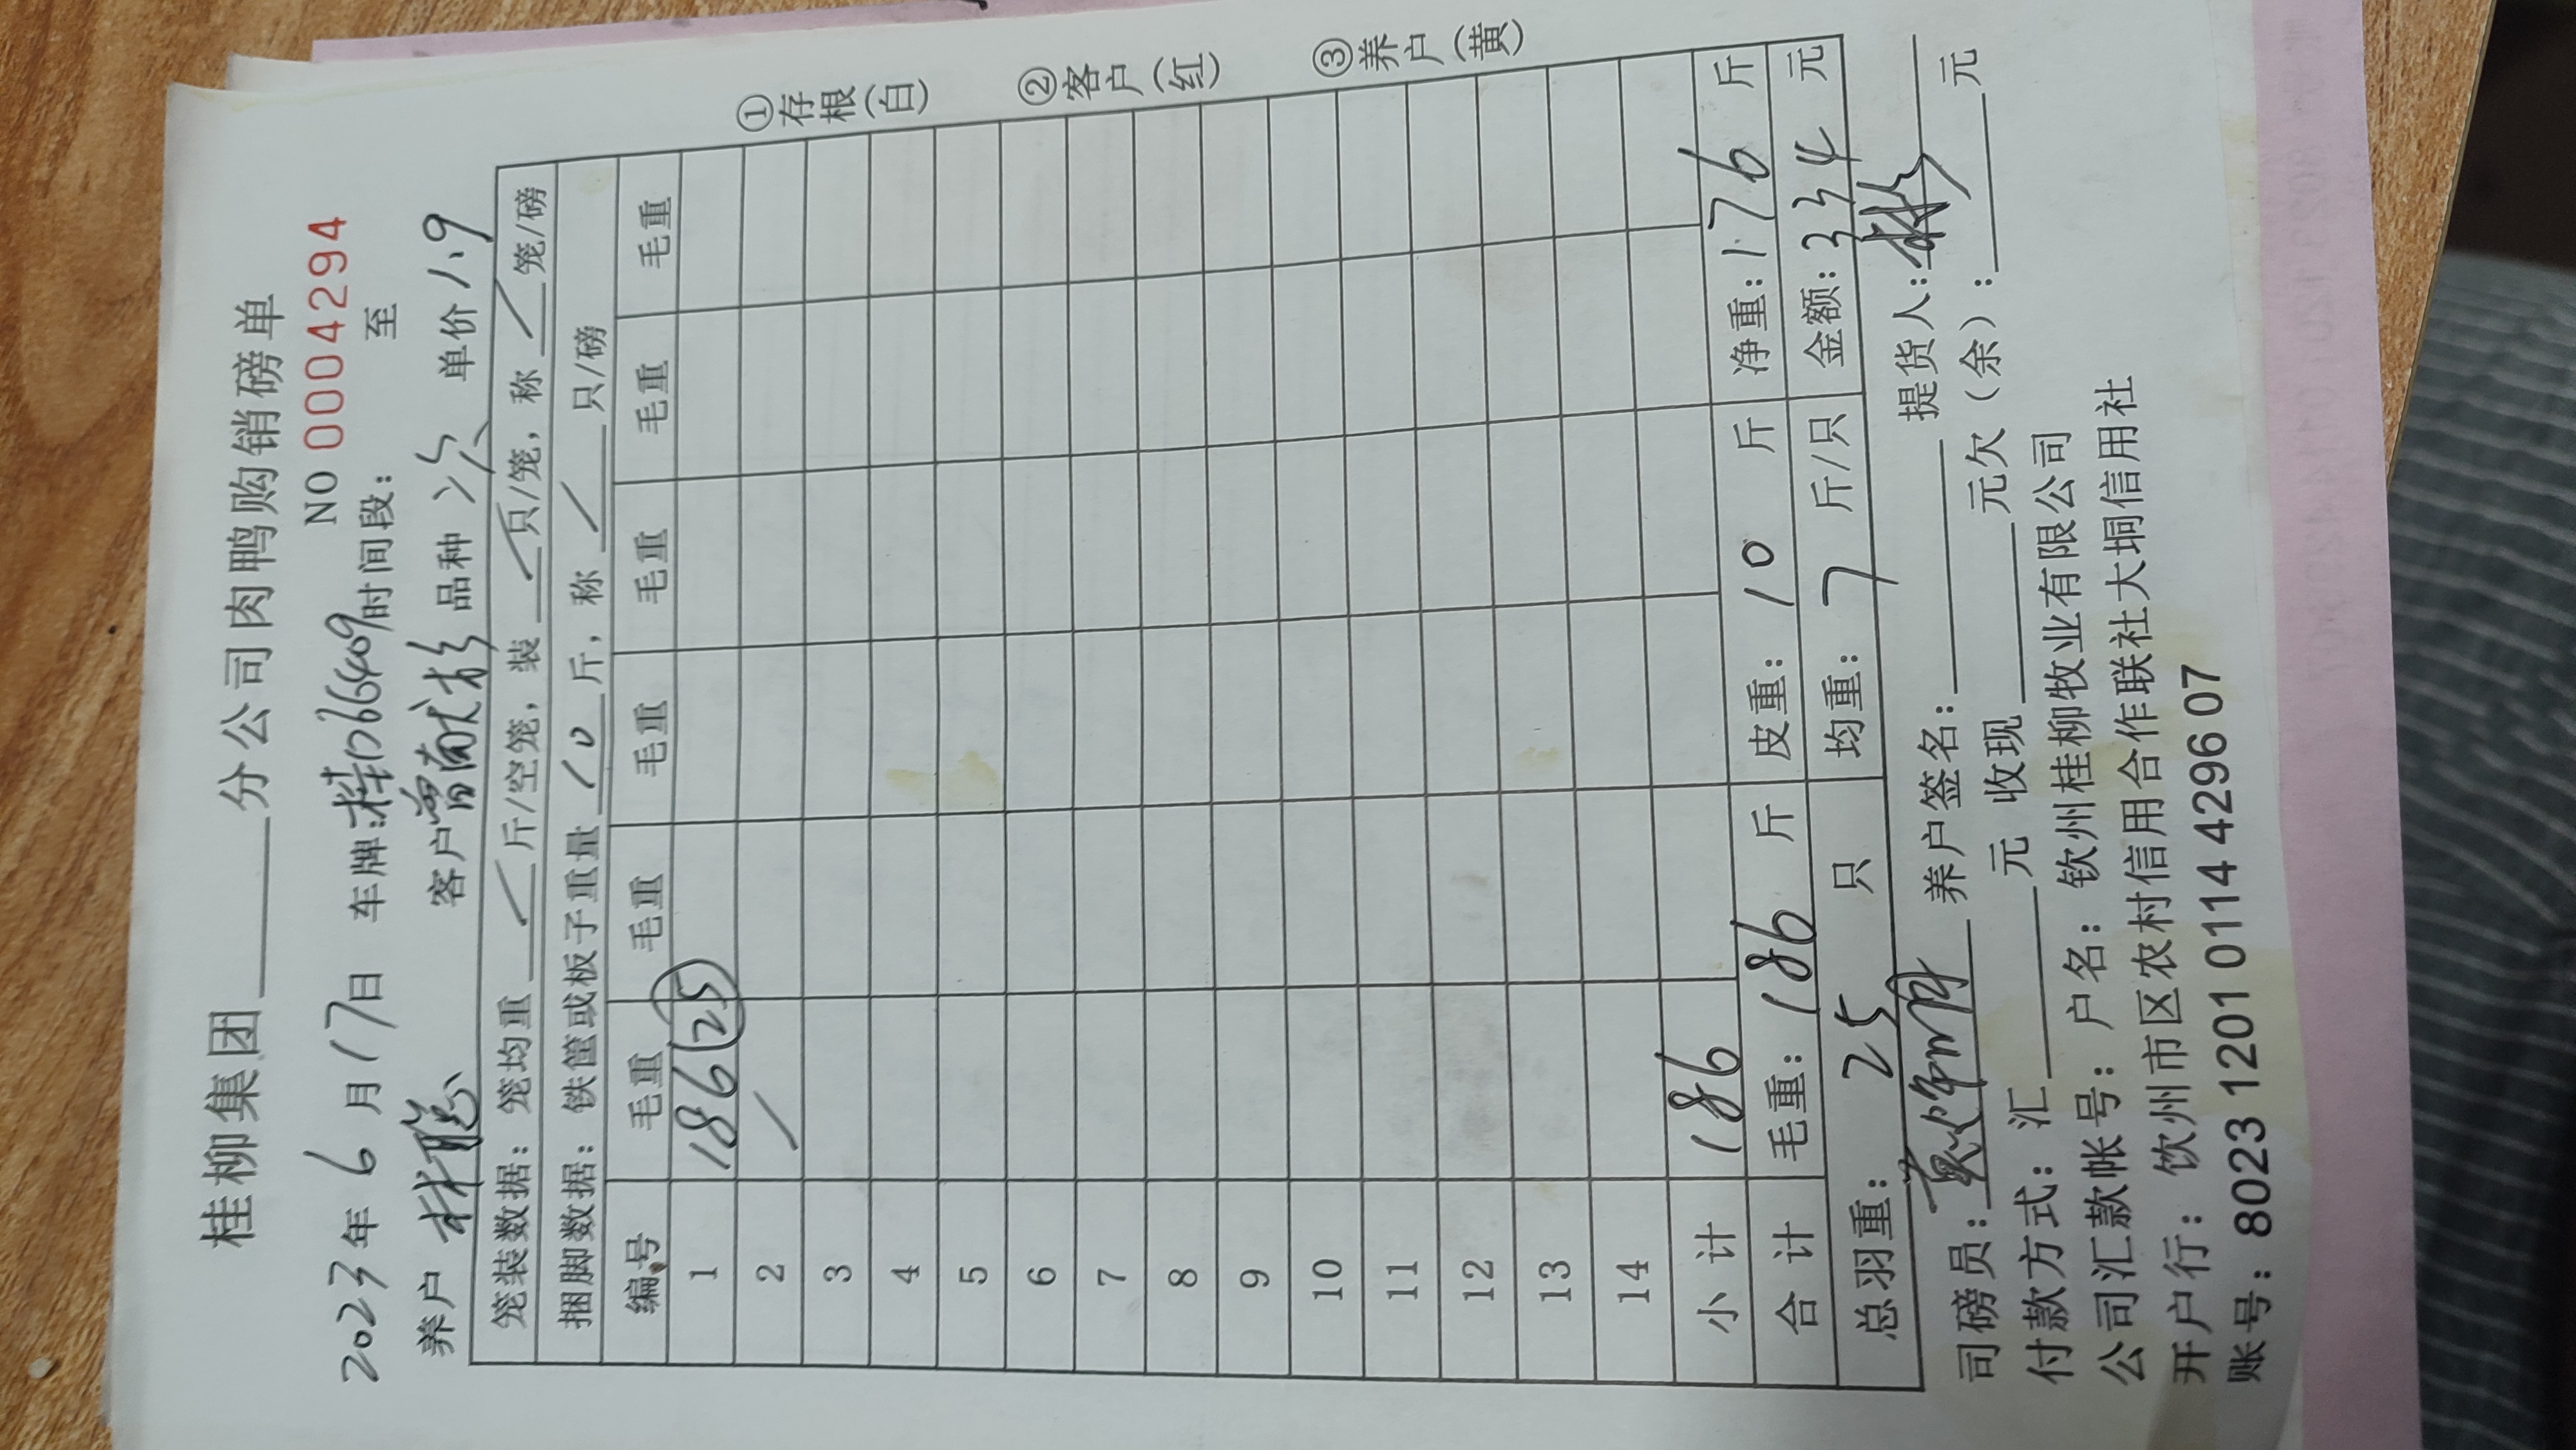 桂柳集团______分公司肉鸭购销磅单
NO 0004294
2023年 6 月 17日 车牌:桂D66409时间段: 至
养户 林聪 客户曾献 品种 次 单价 1.9
笼装数据: 笼均重 / 斤/空笼, 装 / 只/笼, 称 / 笼/磅
捆脚数据: 铁筐或板子重量 10 斤, 称 / 只/磅
编号 毛重 毛重 毛重 毛重 毛重 毛重
1 186 (25)
2 /
3
4
5
6
7
8
9
10
11
12
13
14
小 计 186
合 计 毛重: 186 斤 皮重: 10 斤 净重: 176 斤
总羽重: 25 只 均重: 7 斤/只 金额: 334 元
司磅员: 养户签名: 提货人: 林
付款方式: 汇______元 收现______元欠(余):______元
公司汇款帐号: 户名: 钦州桂柳牧业有限公司
开户行: 钦州市区农村信用合作联社大垌信用社
账号: 8023 1201 0114 4296 07
①存根(白) ②客户(红) ③养户(黄)